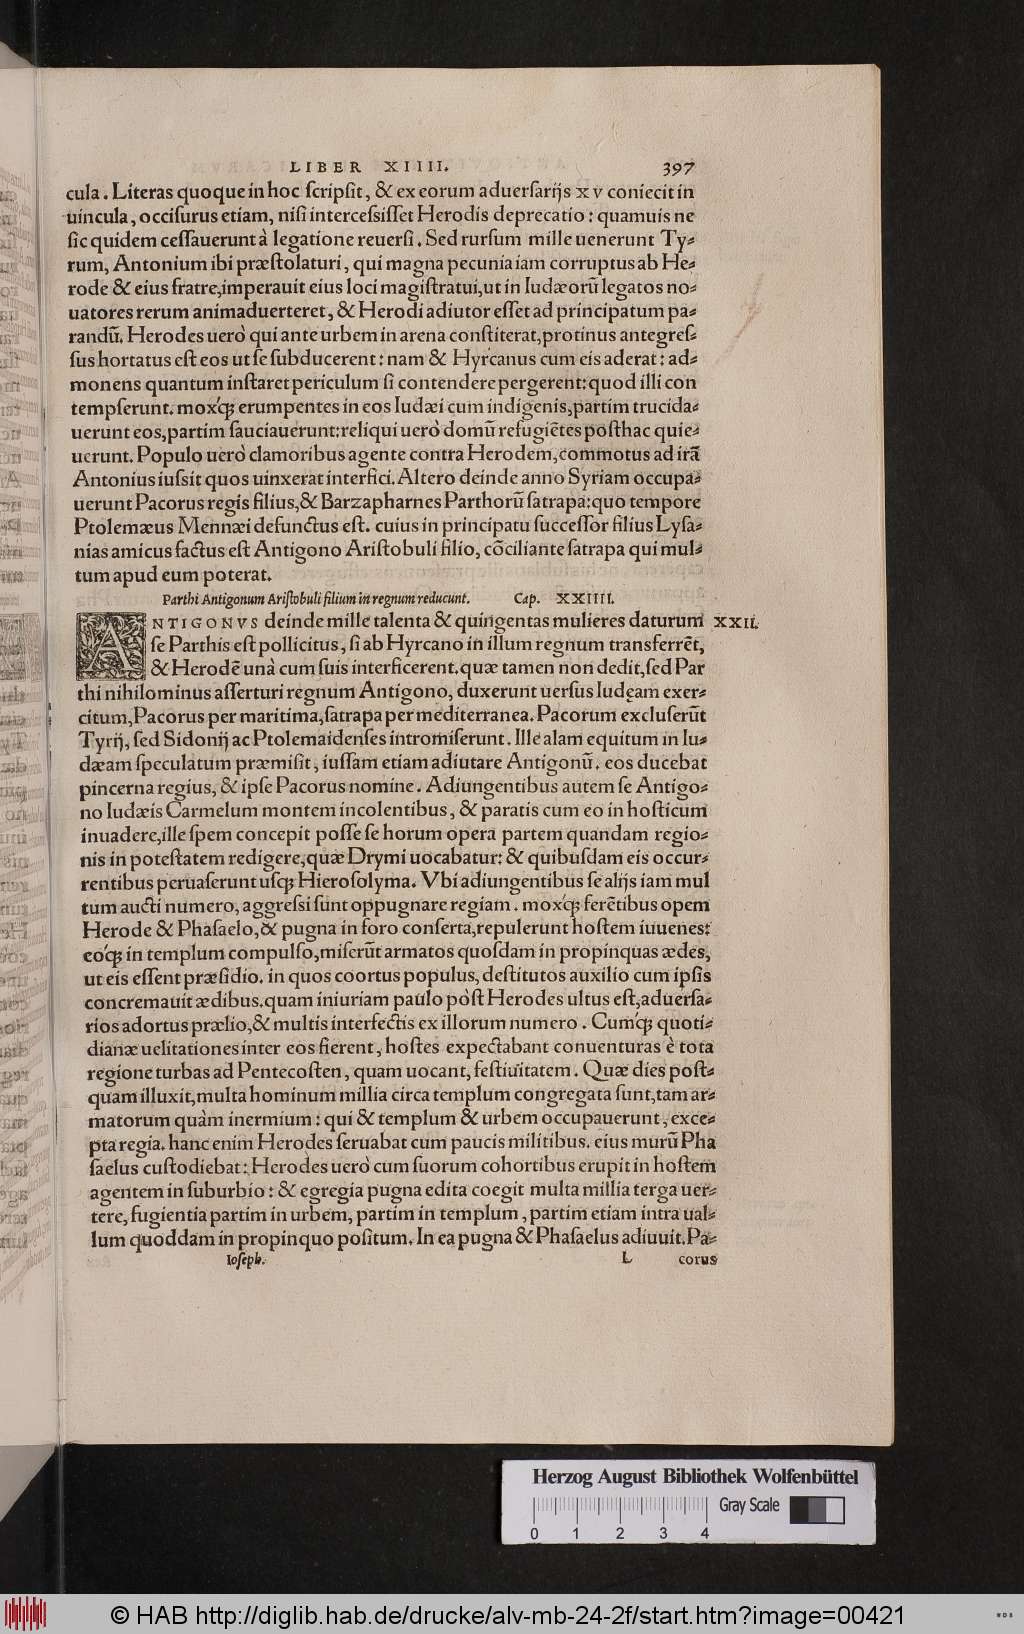 LIBER XIIII. 397
cula. Literas quoque in hoc ſcripſit, & ex eorum aduerſarijs XV coniecit in
uincula, occiſurus etiam, niſi interceſsiſſet Herodis deprecatio: quamuis ne
ſic quidem ceſſauerunt à legatione reuerſi. Sed rurſum mille uenerunt Ty-
rum, Antonium ibi præſtolaturi, qui magna pecunia iam corruptus ab He-
rode & eius fratre, imperauit eius loci magiſtratui, ut in Iudæorũ legatos no-
uatores rerum animaduerteret, & Herodi adiutor eſſet ad principatum pa-
randũ. Herodes uerò qui ante urbem in arena conſtiterat, protinus antegreſ-
ſus hortatus eſt eos ut ſe ſubducerent: nam & Hyrcanus cum eis aderat: ad-
monens quantum inſtaret periculum ſi contendere pergerent: quod illi con
tempſerunt. moxq́; erumpentes in eos Iudæi cum indigenis, partim trucida-
uerunt eos, partim ſauciauerunt: reliqui uerò domũ refugiẽtes poſthac quie-
uerunt. Populo uerò clamoribus agente contra Herodem, commotus ad irã
Antonius iuſsit quos uinxerat interfici. Altero deinde anno Syriam occupa-
uerunt Pacorus regis filius, & Barzapharnes Parthorũ ſatrapa: quo tempore
Ptolemæus Mennæi defunctus eſt. cuius in principatu ſucceſſor filius Lyſa-
nias amicus factus eſt Antigono Ariſtobuli filio, cõciliante ſatrapa qui mul-
tum apud eum poterat.
Parthi Antigonum Ariſtobuli filium in regnum reducunt. Cap. XXIIII.
ANTIGONVS deinde mille talenta & quingentas mulieres daturum XXII.
ſe Parthis eſt pollicitus, ſi ab Hyrcano in illum regnum transferrẽt,
& Herodẽ unà cum ſuis interficerent. quæ tamen non dedit, ſed Par
thi nihilominus aſſerturi regnum Antigono, duxerunt uerſus Iudęam exer-
citum, Pacorus per maritima, ſatrapa per mediterranea. Pacorum excluſerũt
Tyrij, ſed Sidonij ac Ptolemaidenſes intromiſerunt. Ille alam equitum in Iu-
dæam ſpeculatum præmiſit, iuſſam etiam adiutare Antigonũ. eos ducebat
pincerna regius, & ipſe Pacorus nomine. Adiungentibus autem ſe Antigo-
no Iudæis Carmelum montem incolentibus, & paratis cum eo in hoſticum
inuadere, ille ſpem concepit poſſe ſe horum opera partem quandam regio-
nis in poteſtatem redigere, quæ Drymi uocabatur: & quibuſdam eis occur-
rentibus peruaſerunt uſq; Hieroſolyma. Vbi adiungentibus ſe alijs iam mul
tum aucti numero, aggreſsi ſunt oppugnare regiam. moxq́; ferẽtibus opem
Herode & Phaſaelo, & pugna in foro conſerta, repulerunt hoſtem iuuenes:
eoq́; in templum compulſo, miſerũt armatos quoſdam in propinquas ædes,
ut eis eſſent præſidio. in quos coortus populus, deſtitutos auxilio cum ipſis
concremauit ædibus. quam iniuriam paulo pòſt Herodes ultus eſt, aduerſa-
rios adortus prælio, & multis interfectis ex illorum numero. Cumq́; quoti-
dianæ uelitationes inter eos fierent, hoſtes expectabant conuenturas è tota
regione turbas ad Pentecoſten, quam uocant, feſtiuitatem. Quæ dies poſt-
quam illuxit, multa hominum millia circa templum congregata ſunt, tam ar-
matorum quàm inermium: qui & templum & urbem occupauerunt, exce-
pta regia. hanc enim Herodes ſeruabat cum paucis militibus. eius murũ Pha
ſaelus cuſtodiebat: Herodes uerò cum ſuorum cohortibus erupit in hoſtem
agentem in ſuburbio: & egregia pugna edita coegit multa millia terga uer-
tere, fugientia partim in urbem, partim in templum, partim etiam intra ual-
lum quoddam in propinquo poſitum. In ea pugna & Phaſaelus adiuuit. Pa-
Ioſeph. L corus
Herzog August Bibliothek Wolfenbüttel
Gray Scale
0 1 2 3 4
© HAB http://diglib.hab.de/drucke/alv-mb-24-2f/start.htm?image=00421